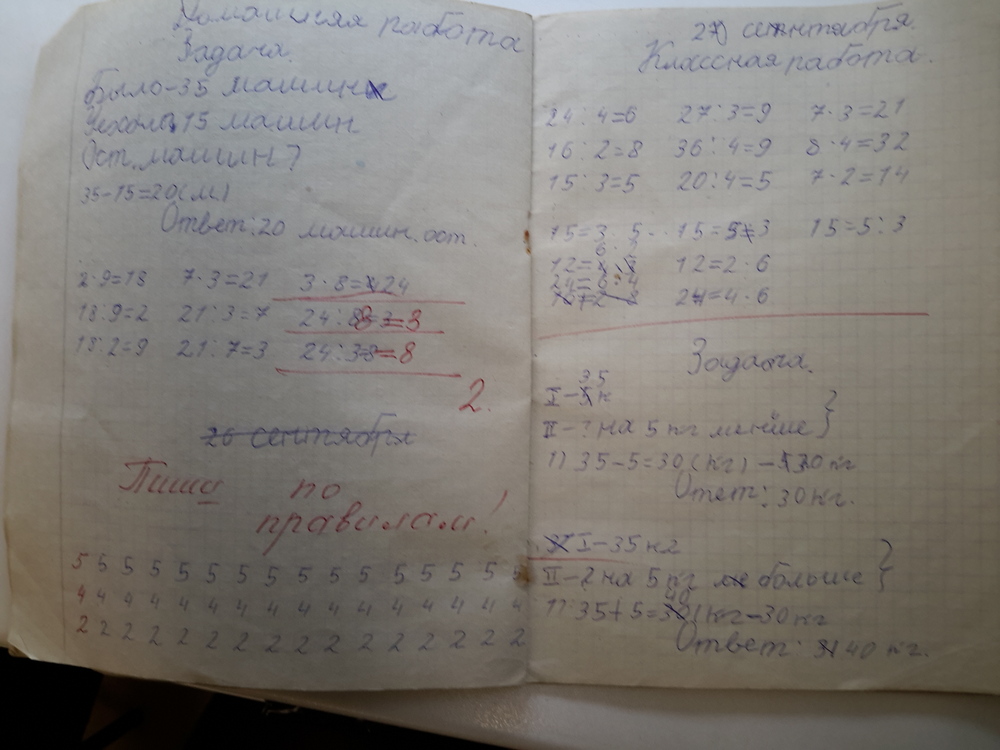 Домашняя работа
Задача.
Было-35 машин
Уехало, 15 машин
Ост. машин?
35-15=20(м)
Ответ: 20 машин. ост.
2·9=18 7·3=21 3·8=24
18:9=2 21:3=7 24:8=3
18:2=9 21:7=3 24:3=8
2.
26 сентября
Пиши по
правилам!
5 5 5 5 5 5 5 5 5 5 5 5 5 5 5 5
4 4 4 4 4 4 4 4 4 4 4 4 4 4 4 4
2 2 2 2 2 2 2 2 2 2 2 2 2 2 2 2
27 сентнтабря.
Классная работа.
24:4=6 27:3=9 7·3=21
16:2=8 36:4=9 8·4=32
15:3=5 20:4=5 7·2=14
15=3·5 15=5·3 15=5:3
12=6·2 12=2·6
24=6·4 24=4·6
Задача.
I-35 к
II-? на 5 кг менше
1) 35-5=30(кг) - 30 кг
Ответ: 30 кг.
I-35 кг
II-? на 5 кг больше
1) 35+5=40(кг-30 кг
Ответ: 40 кг.